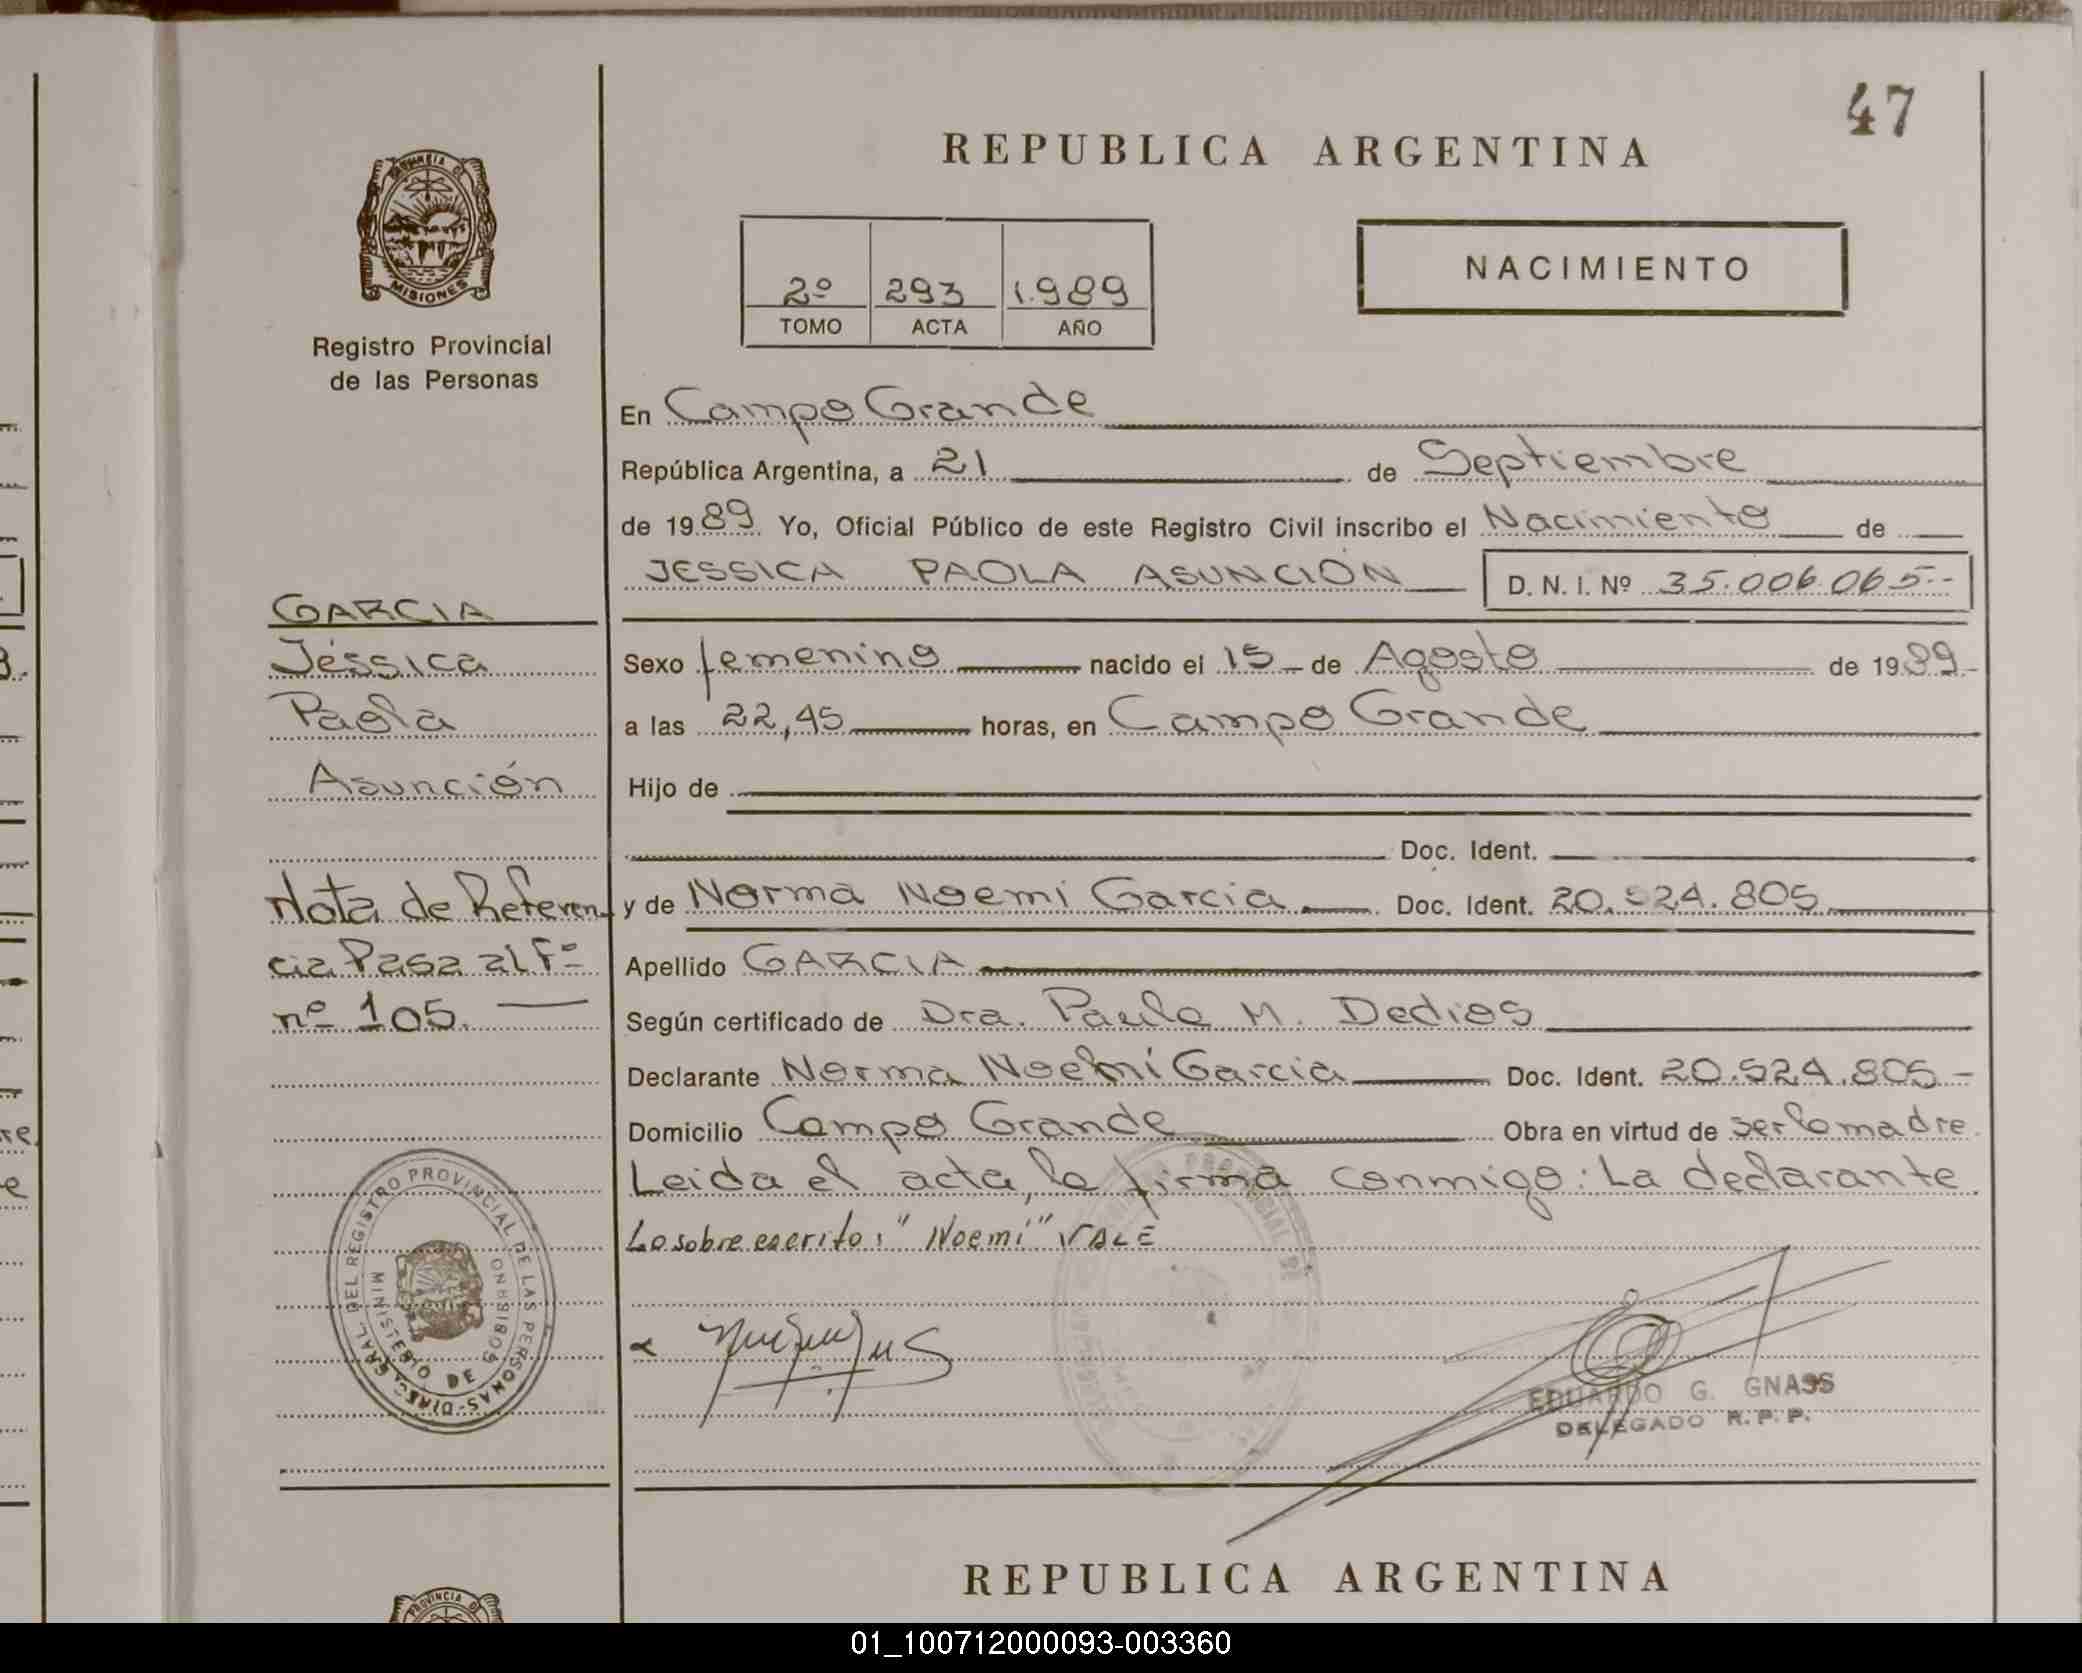 47
REPUBLICA ARGENTINA
PROVINCIA DE
MISIONES
Registro Provincial
de las Personas
2º 293 1.989
TOMO ACTA AÑO
NACIMIENTO
En Campo Grande
República Argentina, a 21 de Septiembre
de 1989 Yo, Oficial Público de este Registro Civil inscribo el Nacimiento de
JESSICA PAOLA ASUNCIÓN D. N. I. Nº 35.006.065.-
GARCIA
Jéssica
Paola
Asunción
Sexo femenino nacido el 15 de Agosto de 1989.-
a las 22,45 horas, en Campo Grande
Hijo de
Doc. Ident.
Nota de Referen
cia Pasa al Fº
nº 105.
y de Norma Noemi Garcia Doc. Ident. 20.524.805
Apellido GARCIA
Según certificado de Dra. Paula M. Dedios
Declarante Norma Noemí Garcia Doc. Ident. 20.524.805-
Domicilio Campo Grande Obra en virtud de ser la madre.
Leida el acta, la firma conmigo: La declarante.
Lo sobre escrito: "Noemí" VALE
DEL REGISTRO PROVINCIAL DE LAS PERSONAS
MINISTERIO DE GOBIERNO
EDUARDO G. GNASS
DELEGADO R.P.P.
REPUBLICA ARGENTINA
PROVINCIA DE
01_100712000093-003360